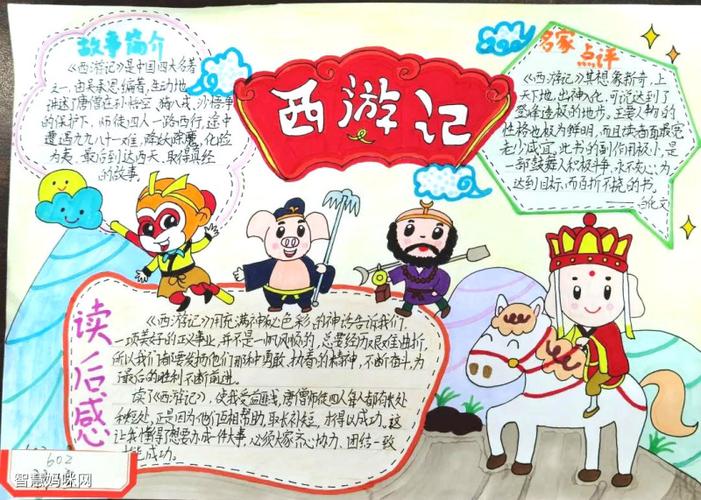 西游记
故事简介
《西游记》是中国四大名著
之一,由吴承恩编著,生动地
讲述了唐僧在孙悟空、猪八戒、沙悟净
的保护下,师徒四人一路西行,途中
遭遇九九八十一难,降妖除魔,化险
为夷,最后到达西天、取得真经
的故事。
名家点评
《西游记》其想象新奇,上
天下地,出神入化,可说达到了
登峰造极的地步。主要人物的
性格也极为鲜明,而且读者面最宽
老少咸宜。此书的副作用极小,是
一部鼓舞人积极斗争、永不灰心、为
达到目标,而百折不挠的书。
——白化文
读后感
《西游记》用充满神秘色彩的神话告诉我们
一项美好的正义事业,并不是一帆风顺的,总要经历艰难曲折,
所以我们都要发扬他们那种勇敢、执着的精神,不断奋斗,为
最后的胜利不断前进。
读了《西游记》,使我受益匪浅,唐僧师徒四人每人都有长处
和短处,正是因为他们互相帮助、取长补短,才得以成功。这
让我懂得了想要办成一件大事,必须大家齐心协力、团结一致
才能成功。
602
智慧妈咪网